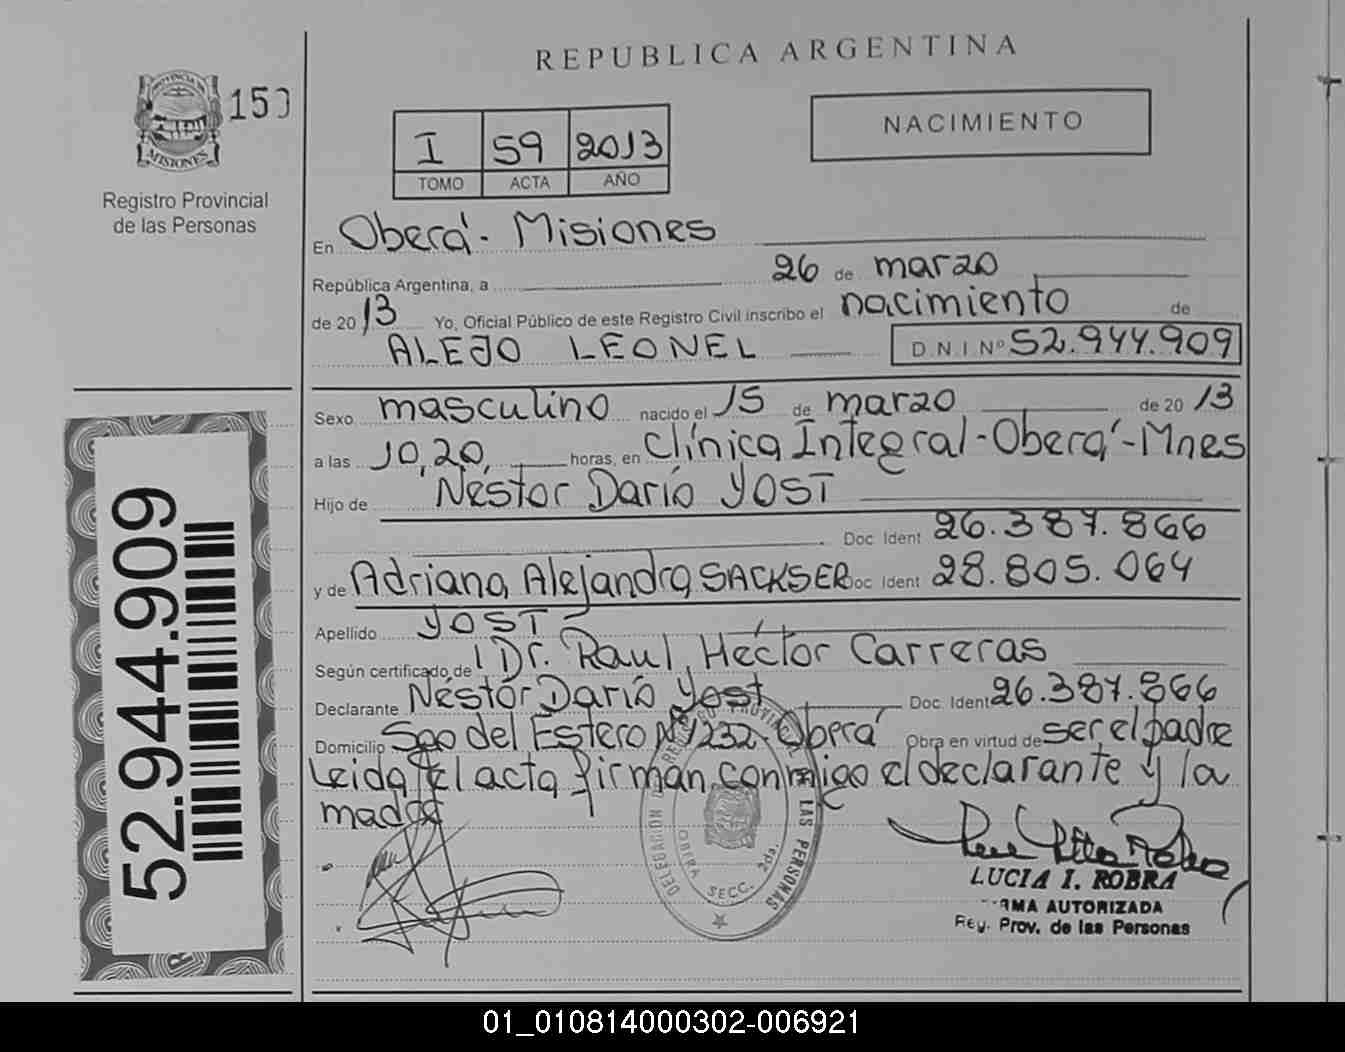 REPUBLICA ARGENTINA
150
NACIMIENTO
I 59 2013
TOMO ACTA AÑO
PROVINCIA DE
MISIONES
Registro Provincial
de las Personas
En Oberá - Misiones
República Argentina, a 26 de marzo
de 2013 Yo, Oficial Público de este Registro Civil inscribo el nacimiento de
ALEJO LEONEL D.N.I. Nº 52.944.909
Sexo masculino nacido el 15 de marzo de 2013
a las 10,20, horas, en Clínica Integral - Oberá - Mnes
Hijo de Néstor Darío YOST
Doc Ident 26.387.866
y de Adriana Alejandra SACKSER Doc Ident 28.805.064
Apellido YOST
Según certificado de Dr. Raul Héctor Carreras
Declarante Néstor Darío Yost Doc. Ident 26.387.866
Domicilio Sgo del Estero Nº 1232 - Oberá Obra en virtud de ser el padre
Leida el acta firman conmigo el declarante y la
madre
52.944.909
DELEGACION DEL REGISTRO PROVINCIAL DE LAS PERSONAS
OBERA SECC. 2da.
LUCIA I. ROBRA
FIRMA AUTORIZADA
Reg. Prov. de las Personas
01_010814000302-006921